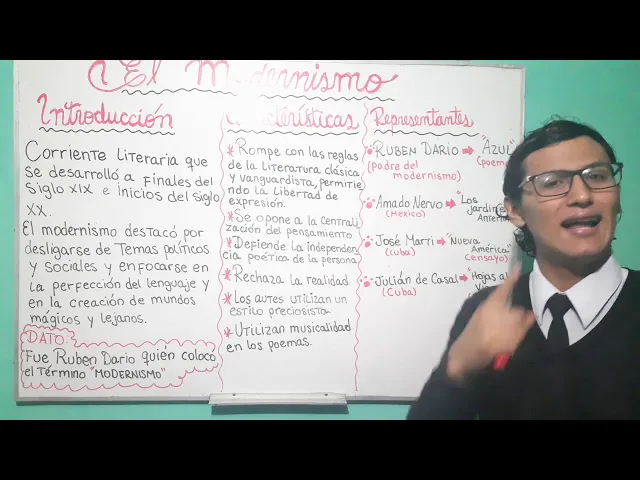 El Modernismo
Introducción
Corriente Literaria que
se desarrolló a Finales del
Siglo XIX e inicios del siglo
XX.
El modernismo destacó por
desligarse de Temas políticos
y sociales y enfocarse en
la perfección del lenguaje y
en la creación de mundos
mágicos y lejanos.
DATO:
Fue Ruben Dario quién colocó
el Término "MODERNISMO"
Características
* Rompe con las reglas
de la literatura clásica
y vanguardista, permitie
ndo la Libertad de
expresión.
* Se opone a la centrali
zación del pensamiento
* Defiende la Independen
cia poética de la persona
* Rechaza la realidad
* Los autres utilizan un
estilo preciosista
* Utilizan musicalidad
en los poemas.
Representantes
RUBEN DARIO → "AZUL
(padre del modernismo) (poema
Amado Nervo → "Los
(Mexico) jardin
José Marti → "Nueva
(Cuba) América"
censayo)
Julián de Casal → "Hojas al
(Cuba)